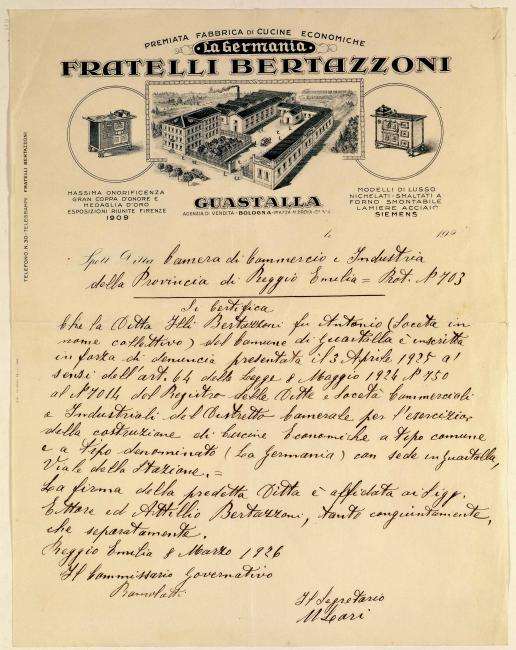 PREMIATA FABBRICA DI CUCINE ECONOMICHE
La Germania
FRATELLI BERTAZZONI
GUASTALLA
MASSIMA ONORIFICENZA
GRAN COPPA D'ONORE E
MEDAGLIA D'ORO
ESPOSIZIONI RIUNITE FIRENZE
1909
AGENZIA DI VENDITA - BOLOGNA - PIAZZA
MODELLI DI LUSSO
NICHELATI - SMALTATI A
FORNO SMONTABILE
LAMIERE ACCIAIO
SIEMENS
TELEFONO N. 30 - TELEGRAMMI FRATELLI BERTAZZONI
li 192
Spett. Ditta Camera di Commercio e Industria
della Provincia di Reggio Emilia = Prot. N° 703
Si Certifica
Che la Ditta F.lli Bertazzoni fu Antonio (Società in
nome collettivo) del Comune di Guastalla è inscritta
in forza di denuncia presentata il 3 Aprile 1925 ai
sensi dell'art. 64 della Legge 8 Maggio 1924 N° 750
al N° 7014 del Registro delle Ditte e Società Commerciali
e Industriali del Distretto Camerale per l'esercizio
della costruzione di Cucine Economiche a tipo comune
e a tipo denominato (La Germania) con sede in Guastalla,
Viale della Stazione. =
La firma della predetta Ditta è affidata ai Sigg.
Ettore ed Attillio Bertazzoni, tanto congiuntamente,
che separatamente.
Reggio Emilia 8 Marzo 1926
Il Commissario Governativo
Il Segretario